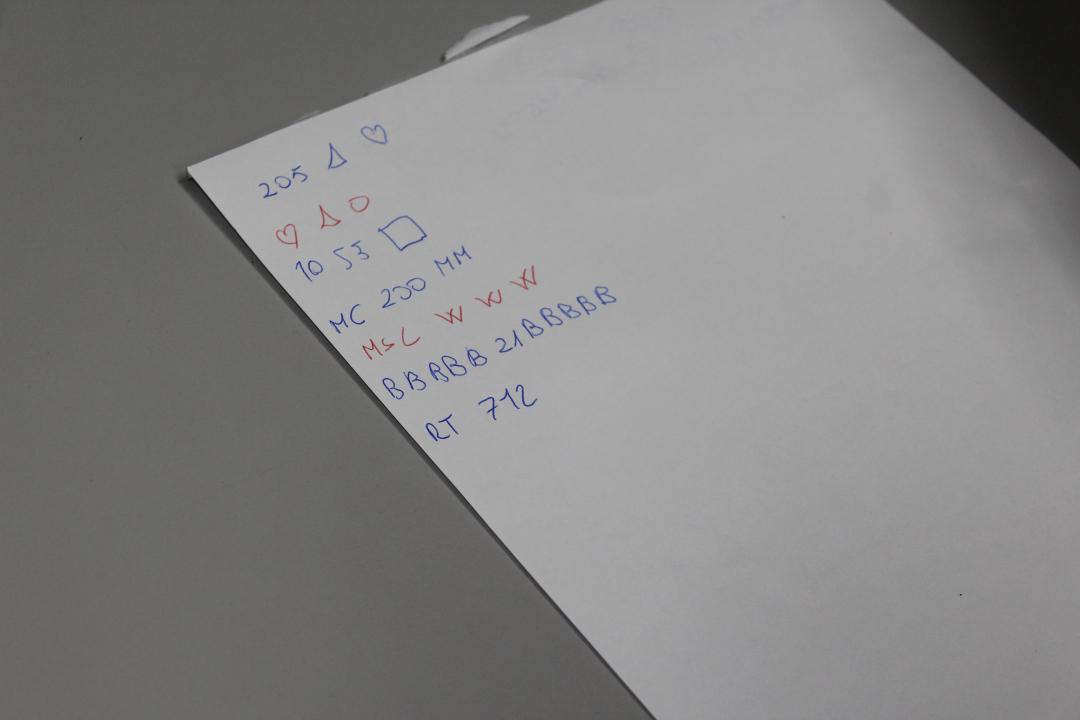 205 △ ♡
♡ △ ○
10 53 □
MC 200 MM
MSC W W W
BBBBB 21BBBBB
RT 712